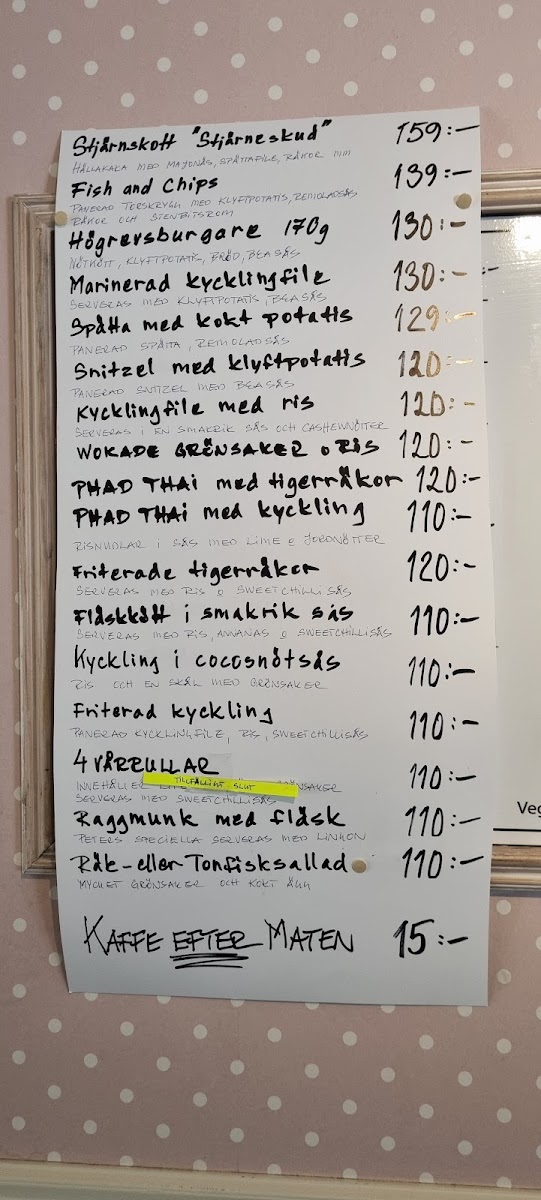 Stjärnskott "Stjärneskud" 159:-
HÄLLAKAKA MED MAJONÄS, SPÄTTAFILE, RÄKOR MM
Fish and Chips 139:-
PANERAD TORSKRYGG MED KLYFTPOTATIS, REMOLADSÅS
RÄKOR OCH STENBITSROM
Högrevsburgare 170g 130:-
NÖTKÖTT, KLYFTPOTATIS, BRÖD, BEASÅS
Marinerad kycklingfile 130:-
SERVERAS MED KLYFTPOTATIS, BEASÅS
Spätta med kokt potatis 129:-
PANERAD SPÄTTA, REMOLADSÅS
Snitzel med klyftpotatis 120:-
PANERAD SNITZEL MED BEASÅS
Kycklingfile med ris 120:-
SERVERAS I EN SMAKRIK SÅS OCH CASHEWNÖTTER
WOKADE GRÖNSAKER o RIS 120:-
PHAD THAI med tigerräkor 120:-
PHAD THAI med kyckling 110:-
RISNUDLAR I SÅS MED LIME o JORDNÖTTER
Friterade tigerräkor 120:-
SERVERAS MED RIS o SWEETCHILLISÅS
Fläskkött i smakrik sås 110:-
SERVERAS MED RIS, ANANAS o SWEETCHILLISÅS
Kyckling i cocosnötsås 110:-
RIS OCH EN SKÅL MED GRÖNSAKER
Friterad kyckling 110:-
PANERAD KYCKLINGFILE, RIS, SWEETCHILLISÅS
4 VÅRRULLAR 110:-
TILLFÄLLIGT SLUT
INNEHÅLLER GRÖNSAKER
SERVERAS MED SWEETCHILLISÅS
Raggmunk med fläsk 110:-
PETERS SPECIELLA SERVERAS MED LINGON
Räk-eller Tonfisksallad 110:-
MYCKET GRÖNSAKER OCH KOKT ÄGG
KAFFE EFTER MATEN 15:-
Veg